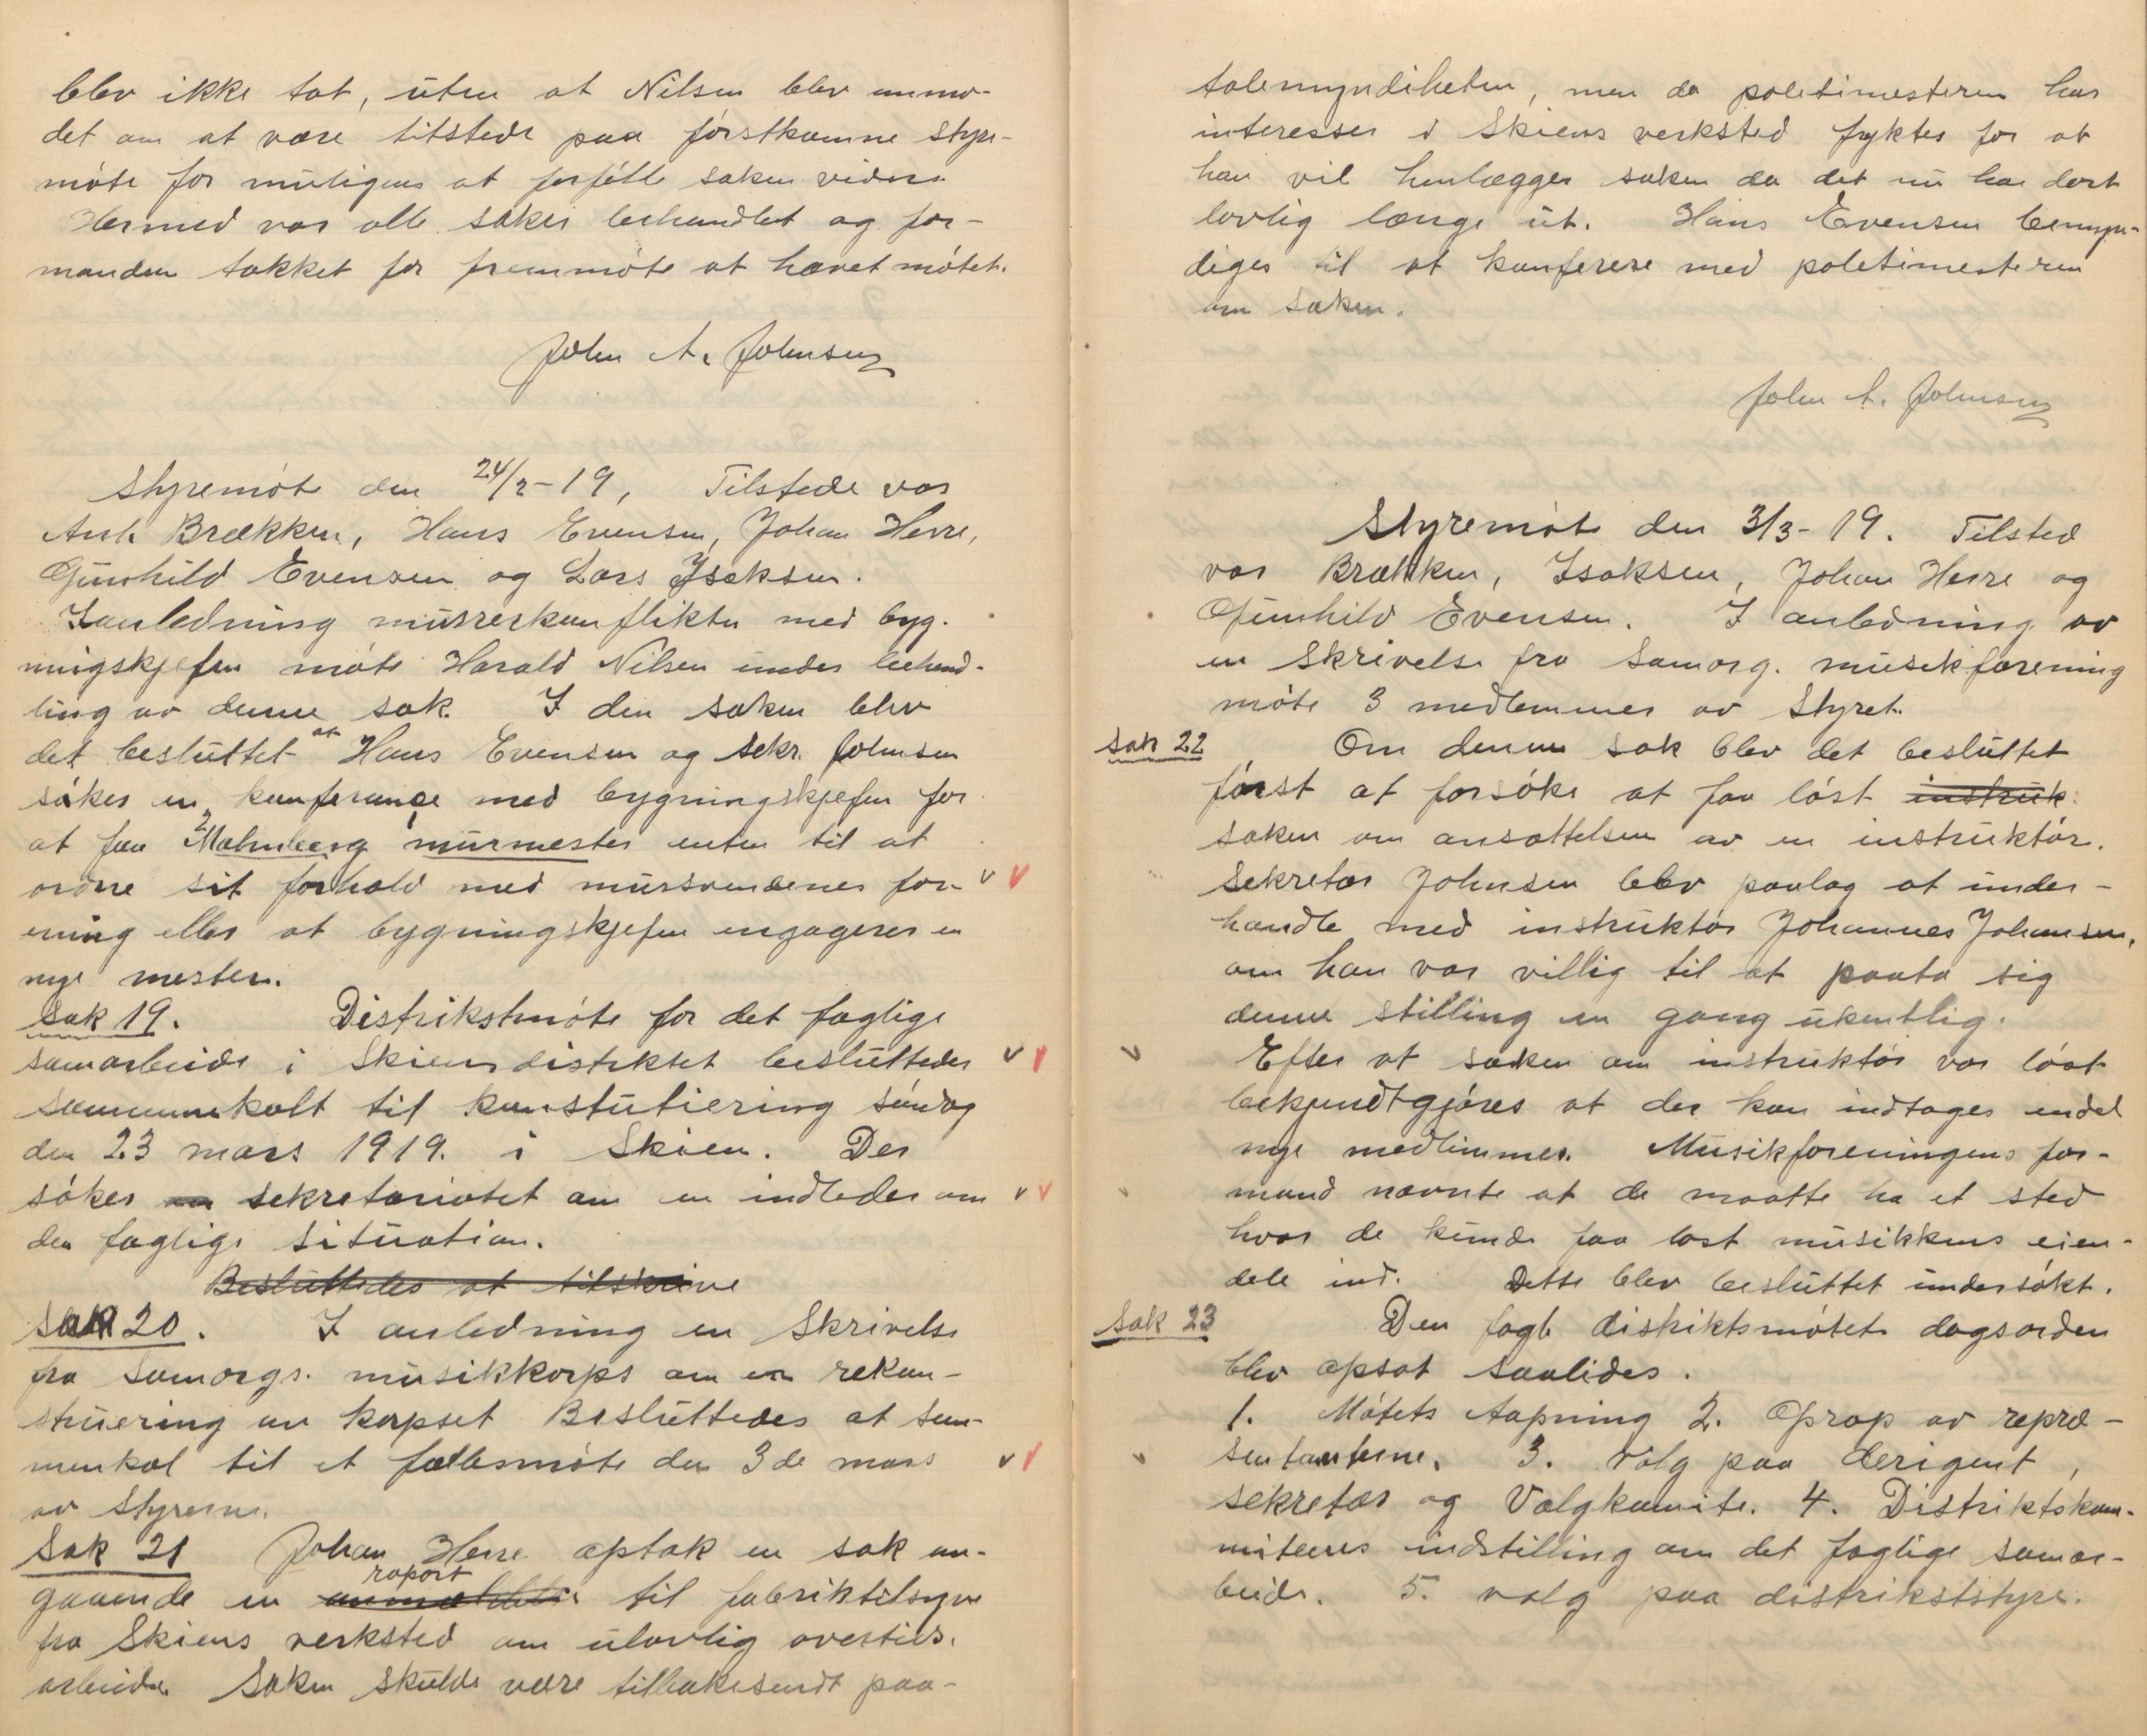 blev ikke tat, uten at Nilsen blev anmo-
det om at være tilstede paa førstkomne styre-
møte for muligens at forfølle saken videre.
Hermed var alle saker behandlet og for-
manden takket for fremmøte at hævet møtet.
John A. Johnsen
Styremøte den 24/2-19, Tilstede var
Ant. Brækken, Hans Evensen, Johan Herre,
Gunhild Evensen og Lars Isaksen.
I anledning murerkonflikten med byg-
ningskjefen møte Harald Nilsen under behand-
ling av denne sak. I den saken blev
det besluttet at Hans Evensen og sekr. Johnsen
søkes en konferance med bygningskjefen for
at faa Malmberg murmester enten til at
ordne sit forhold med mursvendenes for-
ening eller at bygningskjefen engagerer en
nye mester.
Sak 19. Distrikstmøte for det faglige
samarbeide i Skiensdistrktet besluttedes
sammenkalt til konstutiering søndag
den 23 mars 1919. i Skien. Der
søkes sekretariatet om en indleder om
den faglige situation.
Besluttedes at tilskrive
Sak 20. I anledning en Skrivelse
fra Samorgs. musikkorps om en rekon-
struering av korpset Besluttedes at sam-
menkal til et fællesmøte den 3de mars
av Styrerne.
Sak 21 Johan Herre optok en sak an-
gaaende en anmeldelse raport til fabriktilsyne
fra Skiens verksted om ulovlig overtids.
arbeide. Saken skulde være tilbakesendt paa-
talemyndiheten, men da politimesteren har
interesser i Skiens verksted fryktes for at
han vil henlægger saken da det nu har dort
lovlig længe ut. Hans Evensen bemyn-
diges til at konferere med politimesteren
om saken.
John A. Johnsen
Styremøte den 3/3-19. Tilsted
var Brækken, Isaksen, Johan Herre og
Gunhild Evensen. I anledning av
en Skrivelse fra Samorg. musikforening
møte 3 medlemmer av Styret.
Sak 22 Om denne sak blev det besluttet
først at forsøke at faa løst instruk
saken om ansættelsen av en instruktør.
Sekretær Johnsen blev paalag at under-
handle med instruktør Johannes Johansen,
om han var villig til at paata sig
denne stilling en gang ukentlig.
Efter at saken om instruktør var løst
bekjendtgjøres at der kan indtages endel
nye medlimmer. Musikforeningens for-
mand nævnte at de maatte ha et sted
hvor de kunde faa låst musikkens eien-
dele ind. Dette blev besluttet undersøkt.
Sak 23 Den fagl. distriktsmøtets dagsorden
blev opsat saalides.
1. Møtets Aapning 2. Oprop av repræ-
sentanterne. 3. Valg paa derigent,
sekretær og Valgkomite. 4. Distriktskom-
miteens indstilling om det faglige samar-
beide. 5. valg paa distrikststyre.